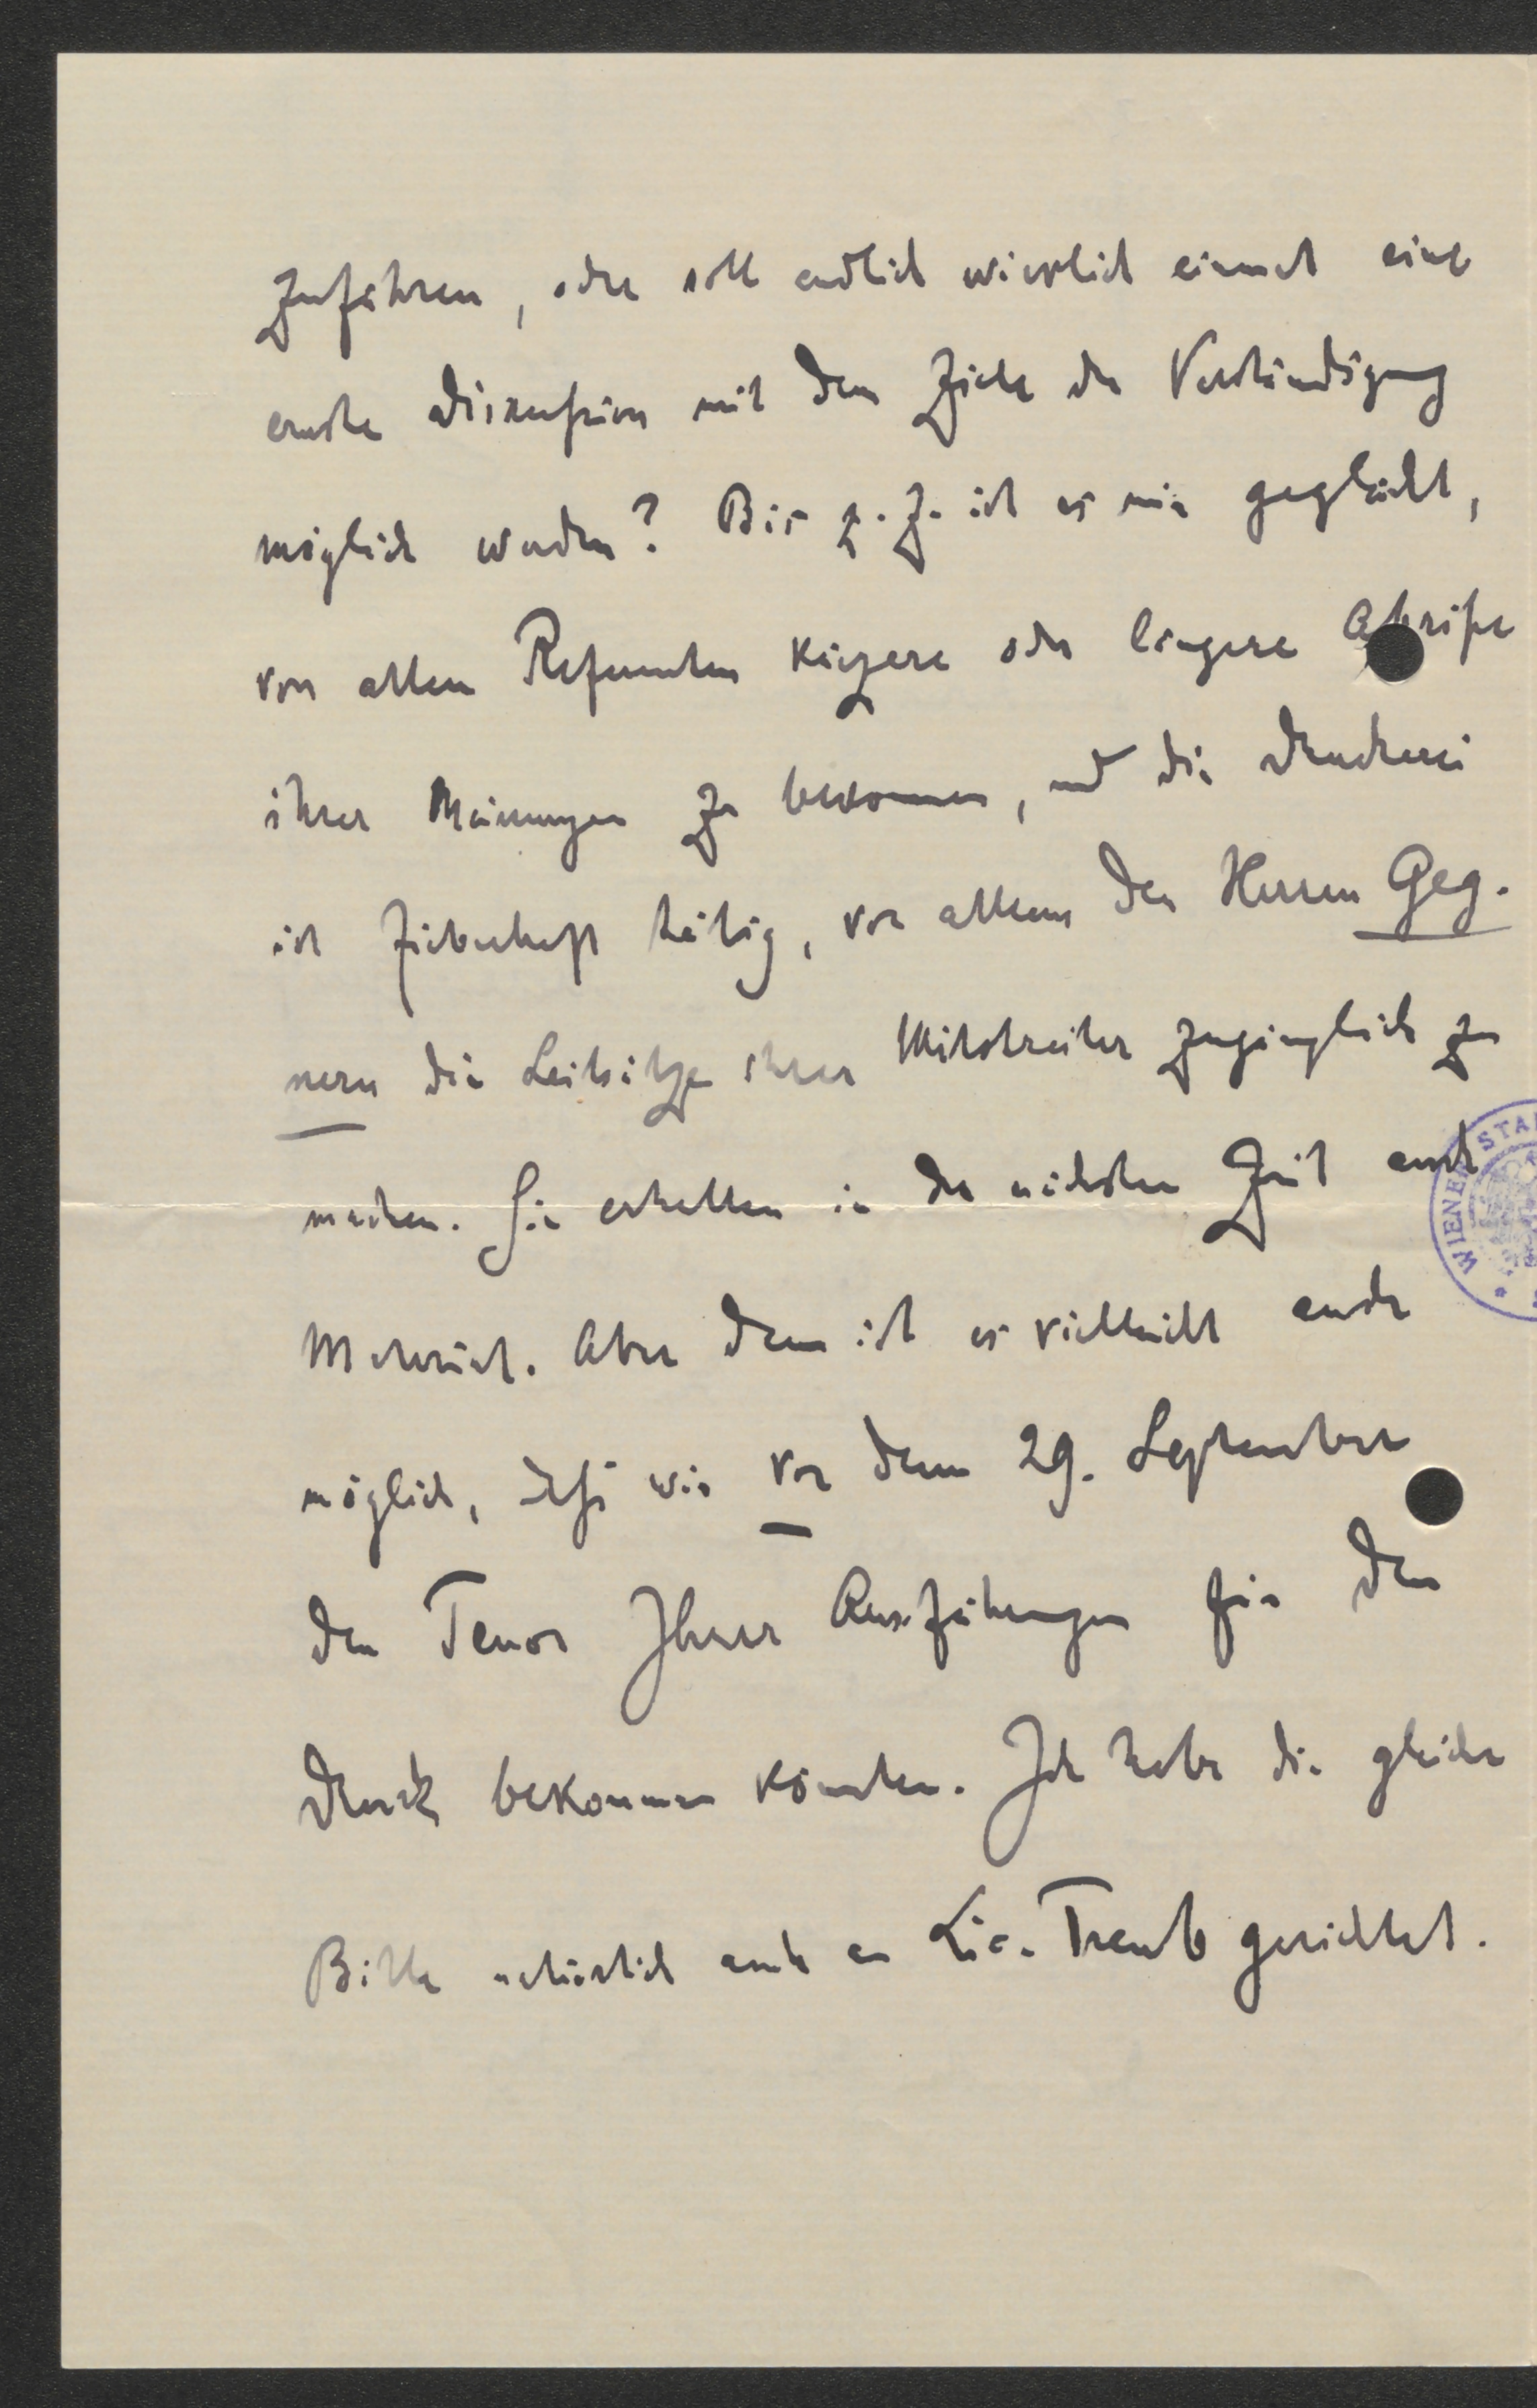 zuführen, oder soll endlich wirklich einmal eine
ernste Diskussion mit dem Ziele der Verständigung
möglich werden? Bis z. Z. ist es mir geglückt,
von allen Referenten kürzere oder längere Abrisse
ihrer Meinungen zu bekommen, und die Druckerei
ist fieberhaft tätig, vor allem den Herren Geg-
nern die Leitsätze ihrer Mitstreiter zugänglich zu
machen. Sie erhalten in der nächsten Zeit auch
Material. Aber dann ist es vielleicht auch
möglich, daß wir vor dem 29. September
den Tenor Ihrer Ausführungen für den
Druck bekommen könnten. Ich habe die gleiche
Bitte natürlich auch an Lic. Traub gerichtet.
WIENER STA